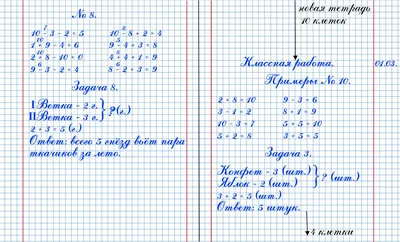 No 8.
7 2
10 - 3 - 2 = 5 10 - 8 + 2 = 4
10 5
1 + 9 - 4 = 6 9 - 4 + 3 = 8
10 8
2 + 8 - 10 = 0 4 + 4 + 1 = 9
6 6
9 - 3 - 2 = 4 8 - 2 + 3 = 9
Задача 8.
I Ветка - 2 г.
II Ветка - 3 г. } ? (г.)
2 + 3 = 5 (г.)
Ответ: всего 5 гнёзд вьёт пара
ткачиков за лето.
новая тетрадь
10 клеток
Классная работа. 01.03.
Примеры No 10.
2 + 8 = 10 9 - 3 = 6
3 - 1 = 2 8 + 1 = 9
10 - 3 = 7
5 + 2 = 8
Задача 3.
Конфет - 3 (шт.)
Яблок - 2 (шт.) } ? (шт.)
3 + 2 = 5 (шт.)
Ответ: 5 штук.
4 клетки